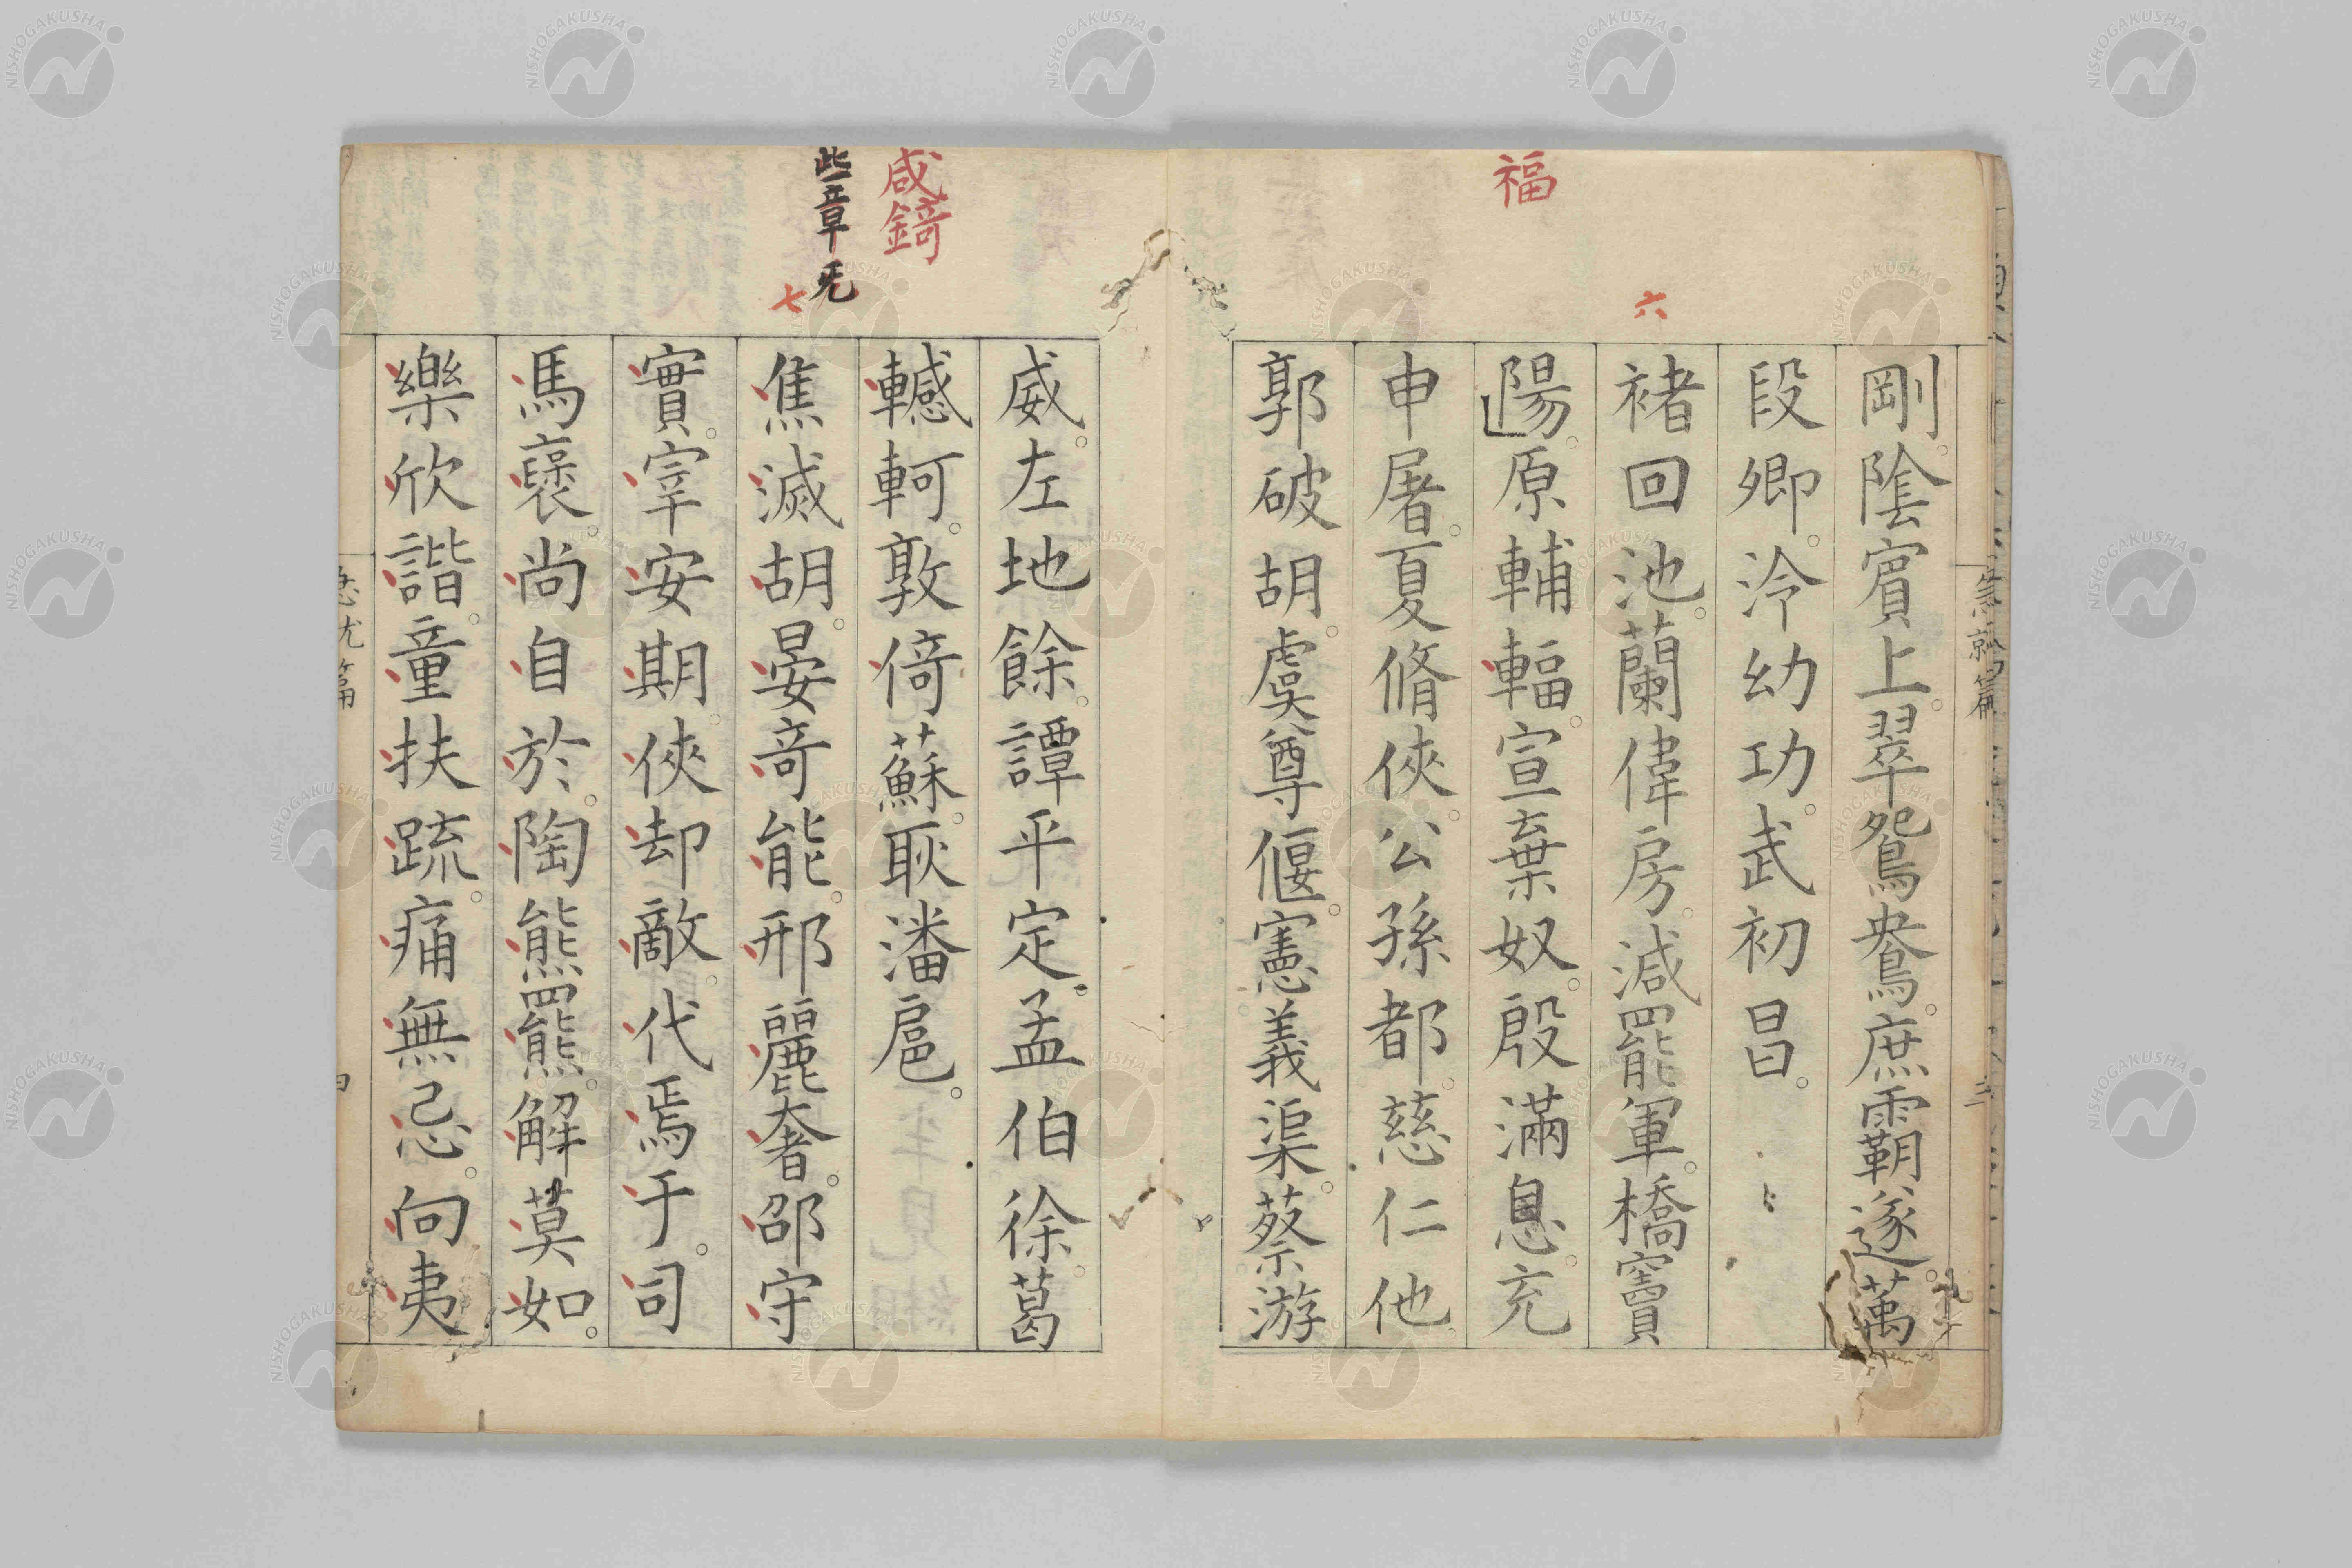 福
六
剛陰賓上翠鴛鴦庶霸遂萬
段卿泠幼功武初昌
褚回池蘭偉房減罷軍橋竇
陽原輔輻宣棄奴殷滿息充
申屠夏脩俠公孫都慈仁他
郭破胡虞尊偃憲義渠蔡游
急就篇
三
咸錡
此章旡
七
威左地餘譚平定孟伯徐葛
轗軻敦倚蘇耿潘扈
焦滅胡晏奇能邢麗奢邵守
實宰安期俠却敵代焉于司
馬襃尚自於陶熊羆解莫如
樂欣諧童扶疏痛無忌向夷
NISHOGAKUSHA